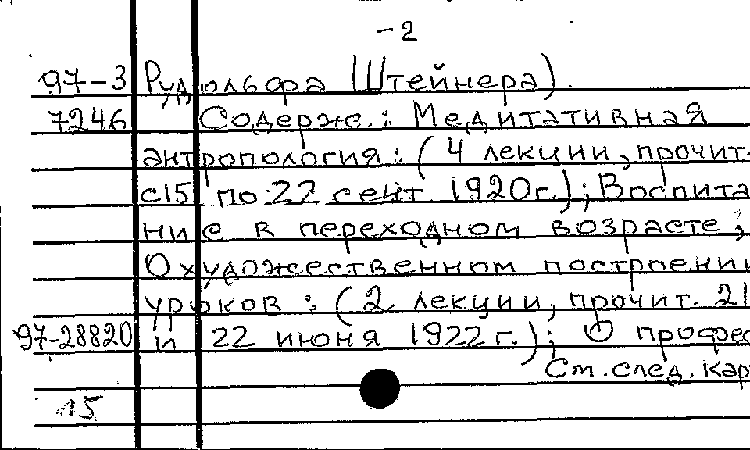 -2
97-3 Рудольфа (Штейнера).
7246 Содерж.: Медитативная
антропология: (4 лекции, прочит.
с 15 по 22 сент. 1920г.); Воспита
ние в переходном возрасте;
О художественном построении
уроков: (2 лекции, прочит. 21
97-28820 и 22 июня 1922г.); О профес
См. след. кар
15